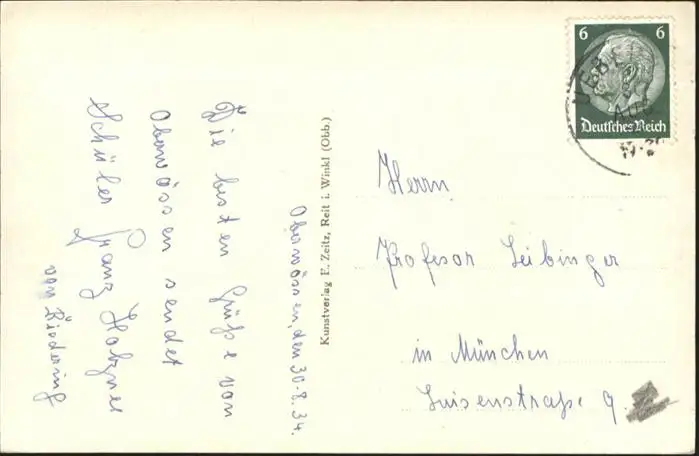 Oberwössen, den 30.8.34.
Die besten Grüße von
Oberwössen sendet
Schüler Franz
von Riedering
Kunstverlag F. Zeitz, Reit i. Winkl (Obb.)
6 6
Deutsches Reich
Herrn
Profesor Leibinger
in München
Luisenstraße 9.